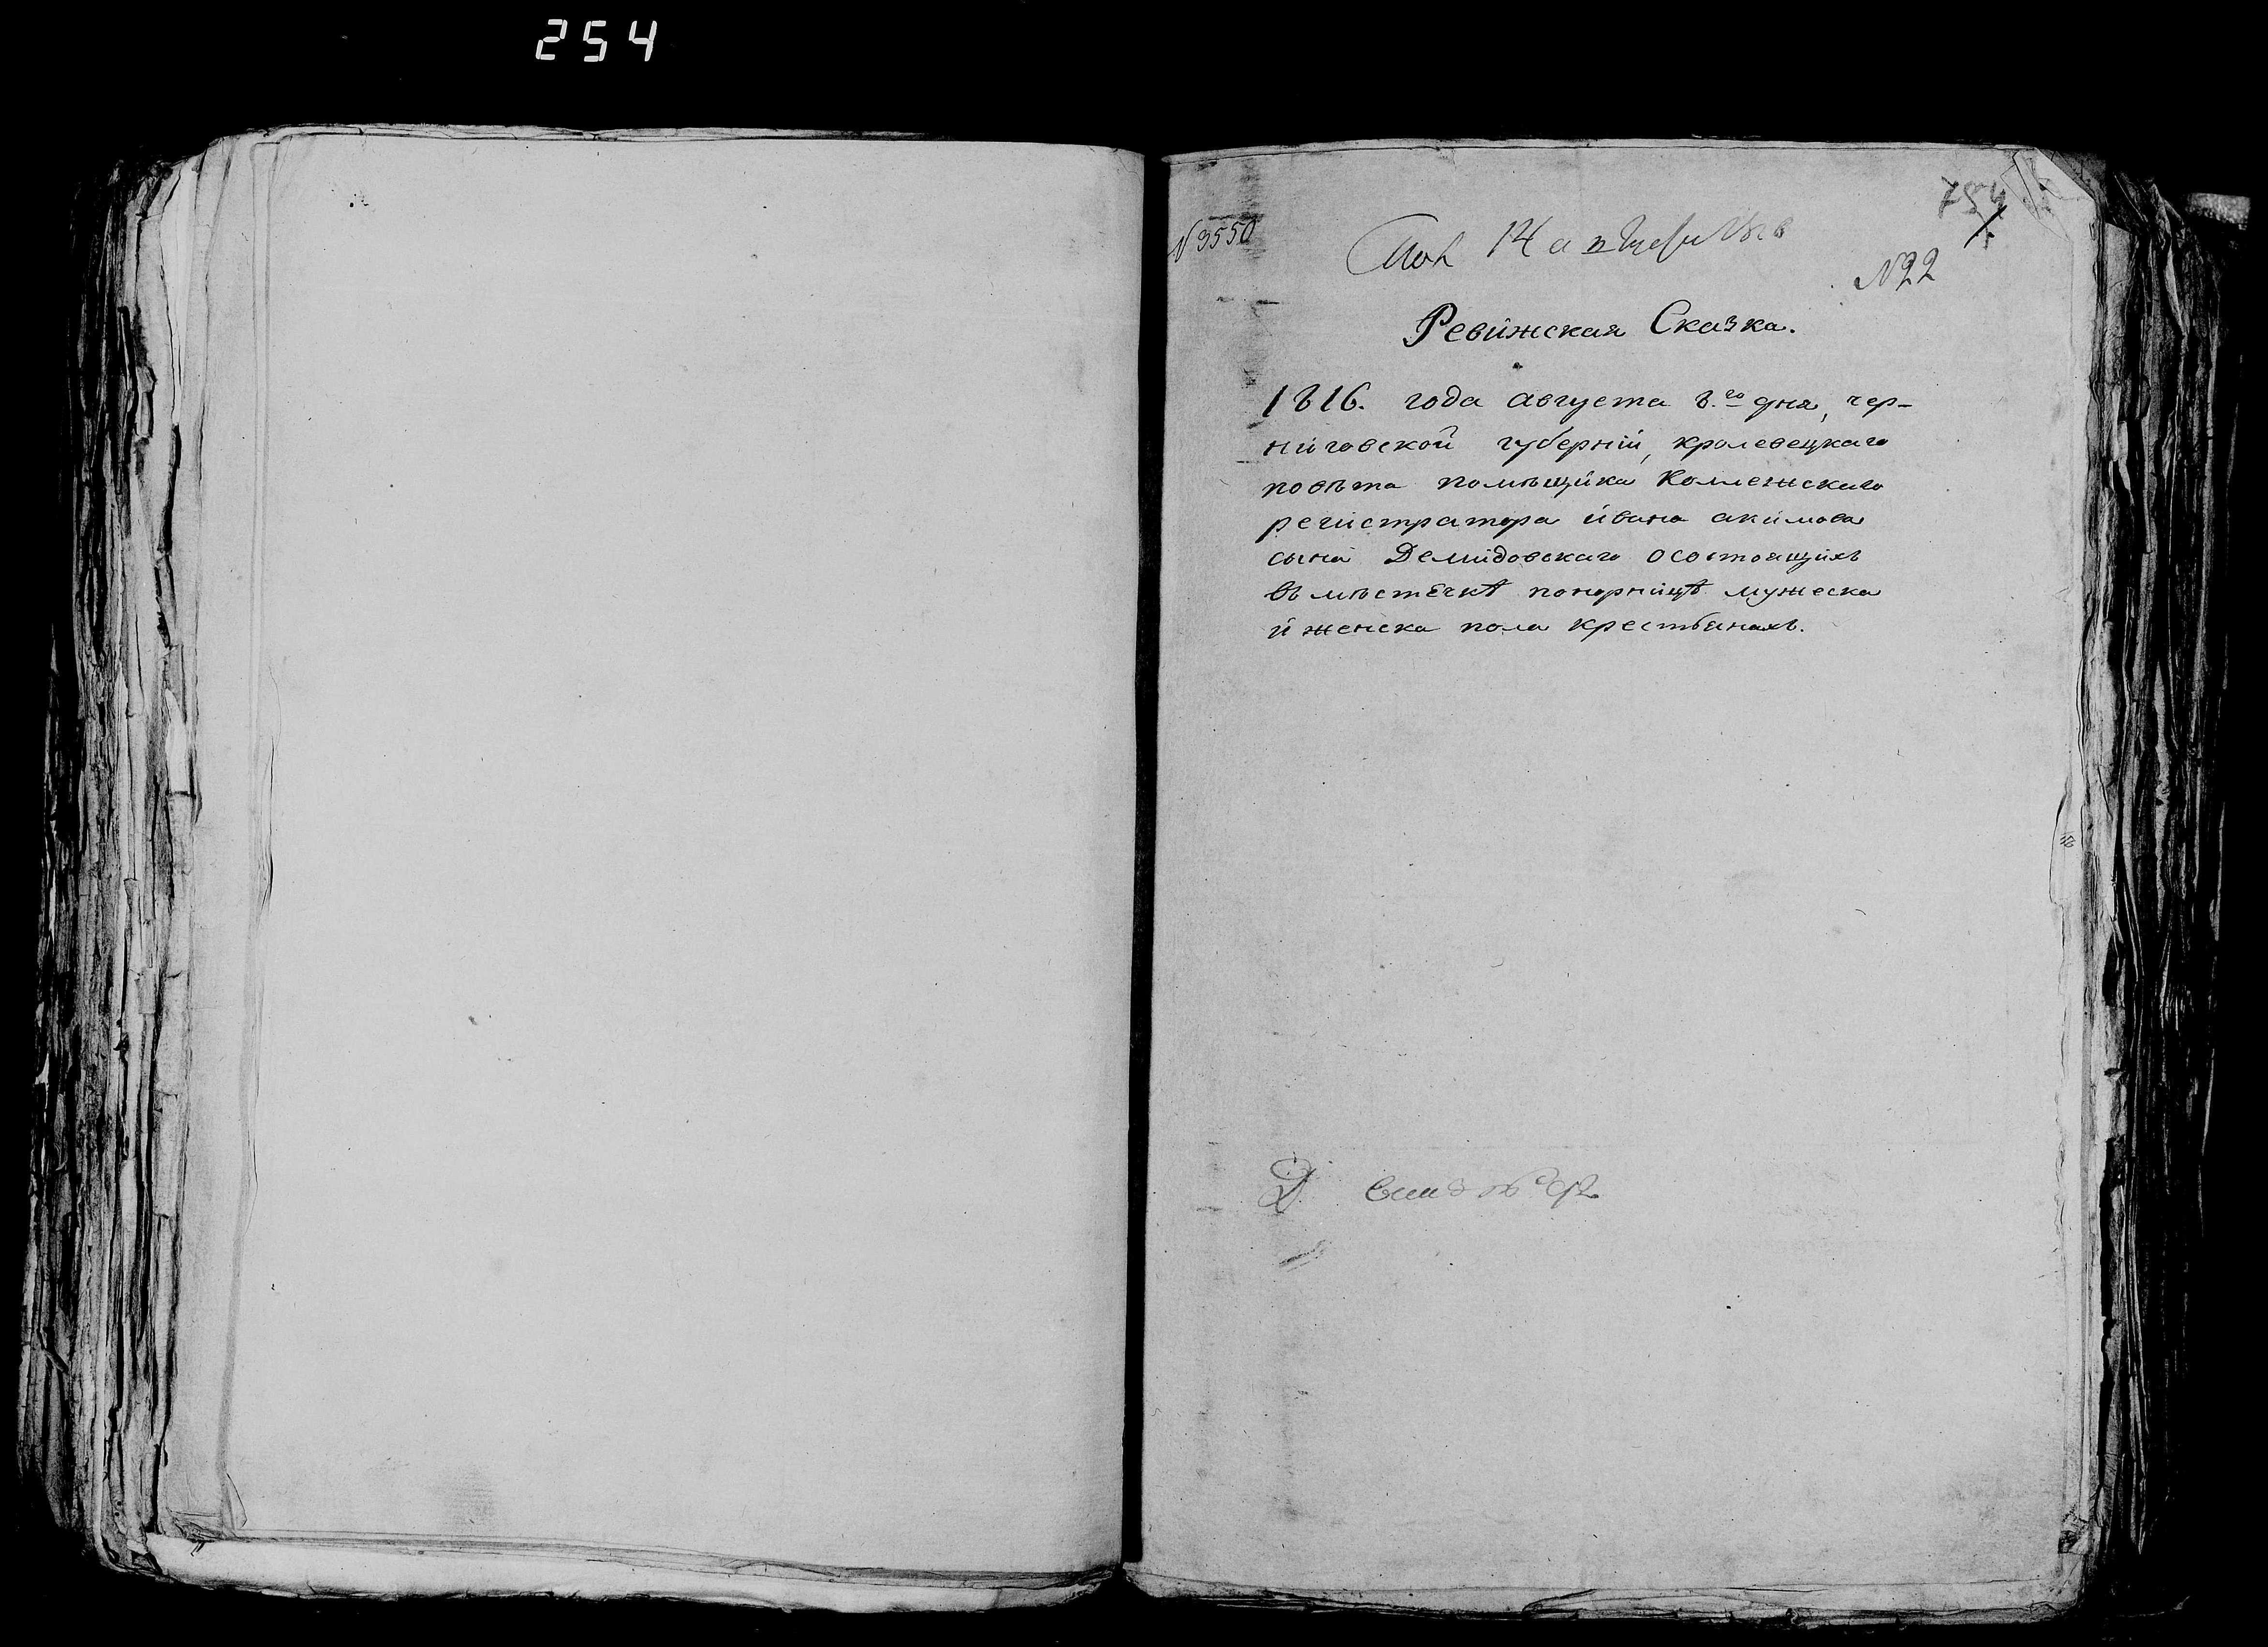 254
754
N 3550
N 22
Ревижская Сказка.
1816. года августа 8.го дня, чер-
ниговской губернiи, кролевецкаго
повѣта помѣщика Коллежскаго
регистратора ивана акимова
сына Демидовскаго осостоящихъ
въ мѣстечкѣ понорницѣ мужеска
и женска пола крестьянахъ.